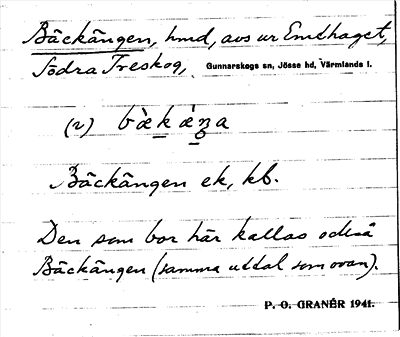 Bäckängen, hmd, avs ur Emthaget,
Södra Treskog, Gunnarskogs sn, Jösse hd, Värmlands l.
(v) bæ̀kǽŋa
Bäckängen ek, kb.
Den som bor här kallas också
Bäckängen (samma uttal som ovan).
P. O. GRANÉR 1941.